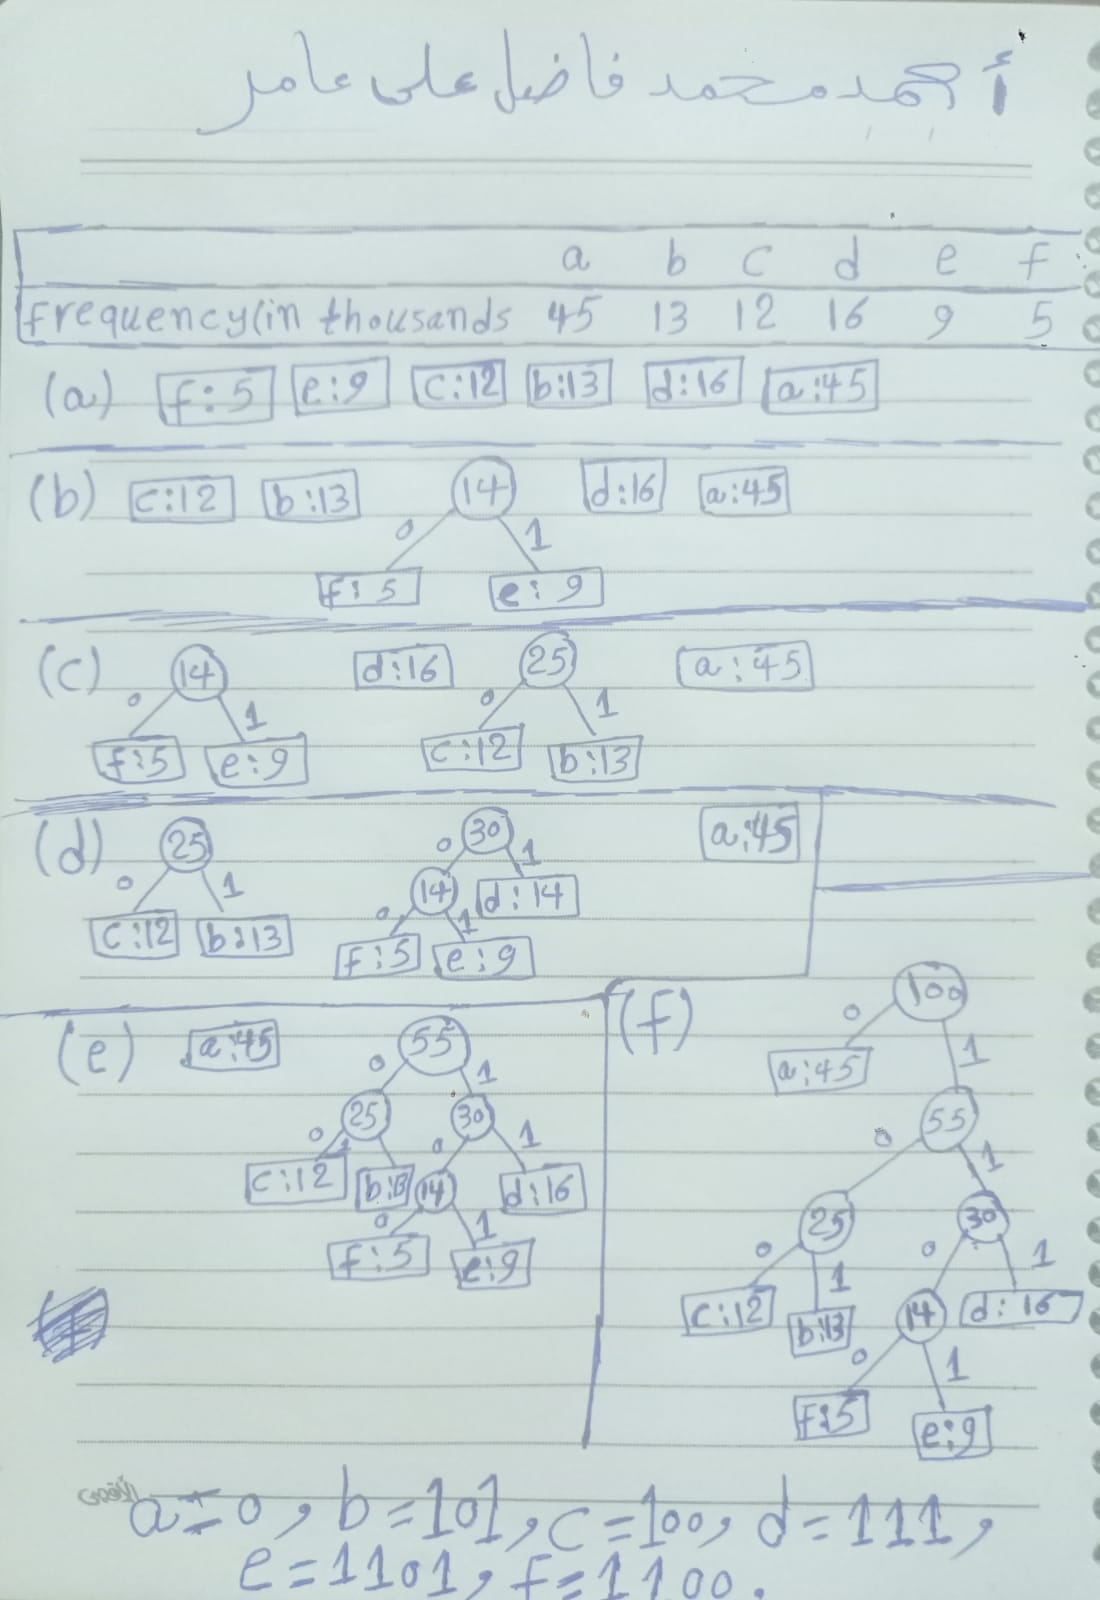 أحمد محمد فاضل على عامر
a b c d e f
frequency(in thousands 45 13 12 16 9 5
(a) f:5 e:9 c:12 b:13 d:16 a:45
(b) c:12 b:13 14 d:16 a:45
0 1
f:5 e:9
(c) 14 d:16 25 a:45
0 1 0 1
f:5 e:9 c:12 b:13
(d) 25 30 a:45
0 1 0 1
14 d:14
c:12 b:13 0 1
f:5 e:9
(e) a:45 55
0 1
25 30
0 1 0 1
c:12 b:13 14 d:16
0 1
f:5 e:9
(f) 100
0 1
a:45
55
0 1
25 30
0 1 0 1
c:12 b:13 14 d:16
0 1
f:5 e:9
a=0, b=101, c=100, d=111,
e=1101, f=1100.